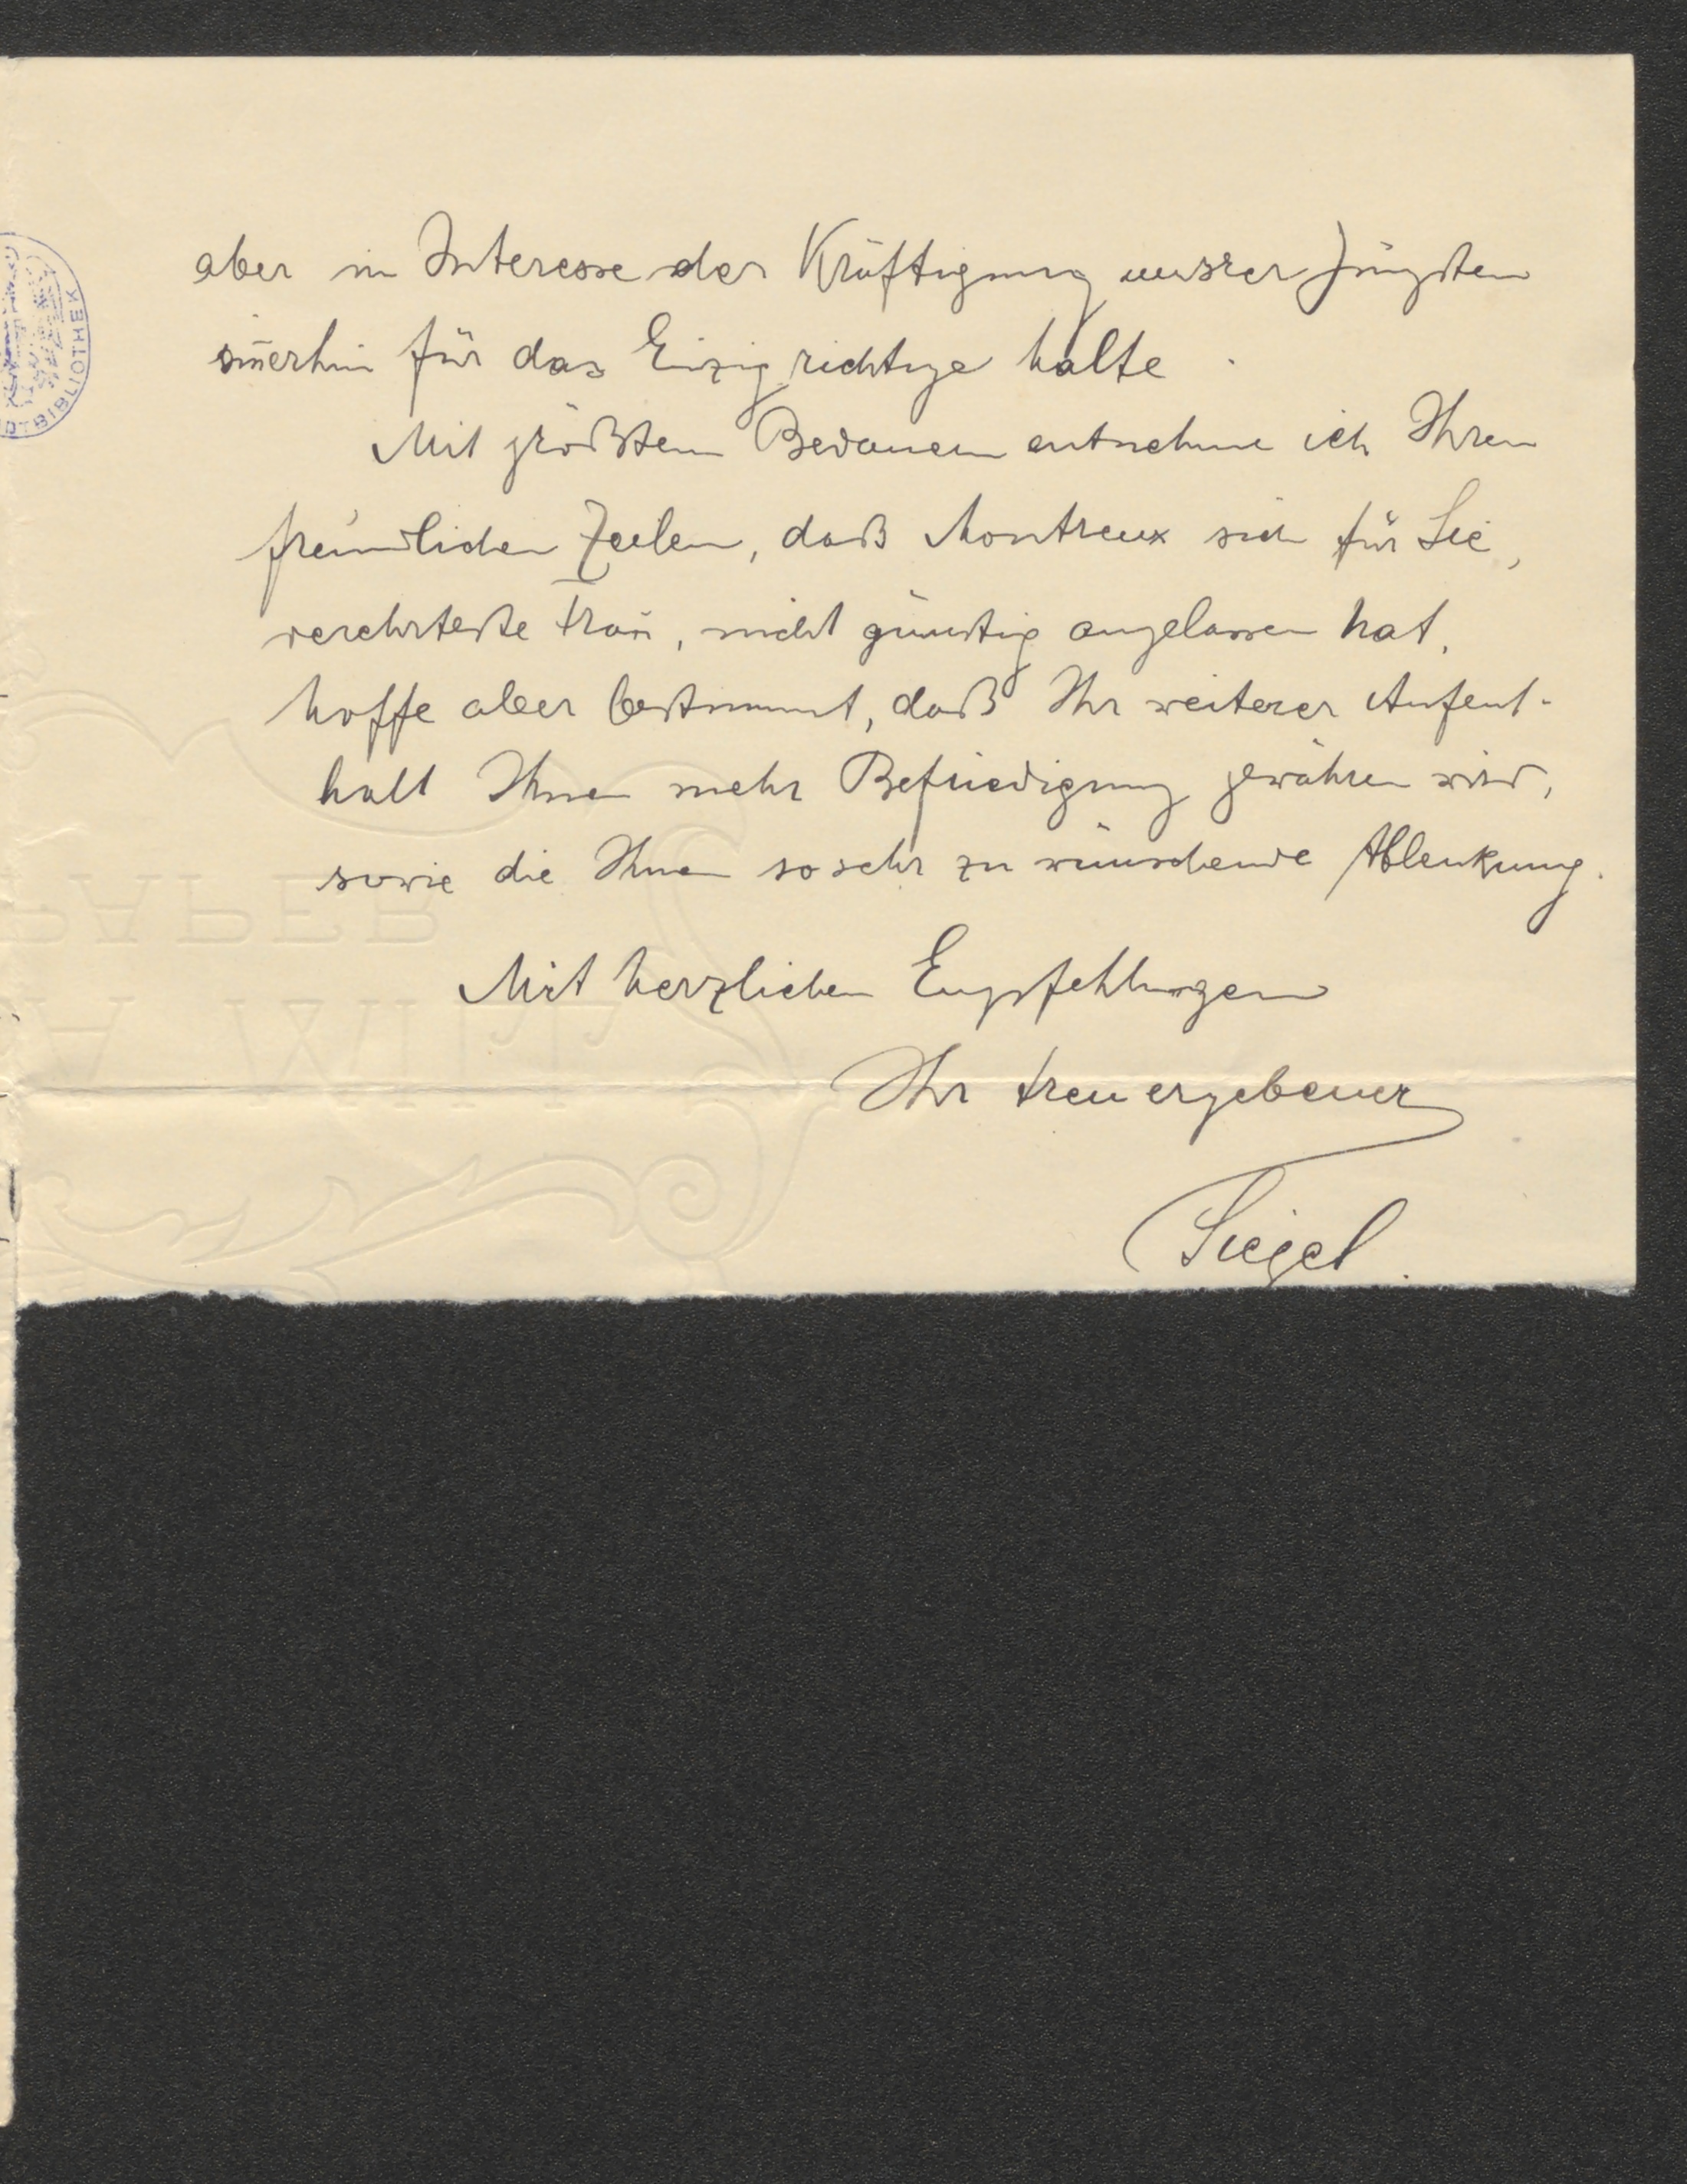 aber im Interesse der Kräftigung unsrer Jüngsten
im̅erhin für das Einzig richtige halte.
Mit größtem Bedauern entnehme ich Ihren
freundlichen Zeilen, daß Montreux sich für Sie,
verehrteste Frau, nicht günstig angelassen hat,
hoffe aber bestimmt, daß Ihr weiterer Aufent-
halt Ihnen mehr Befriedigung gewähren wird,
sowie die Ihnen so sehr zu wünschende Ablenkung.
Mit herzlichen Empfehlungen
Ihr treu ergebener
Siegel.
DTBIBLIOTHEK
PAPER
MILL